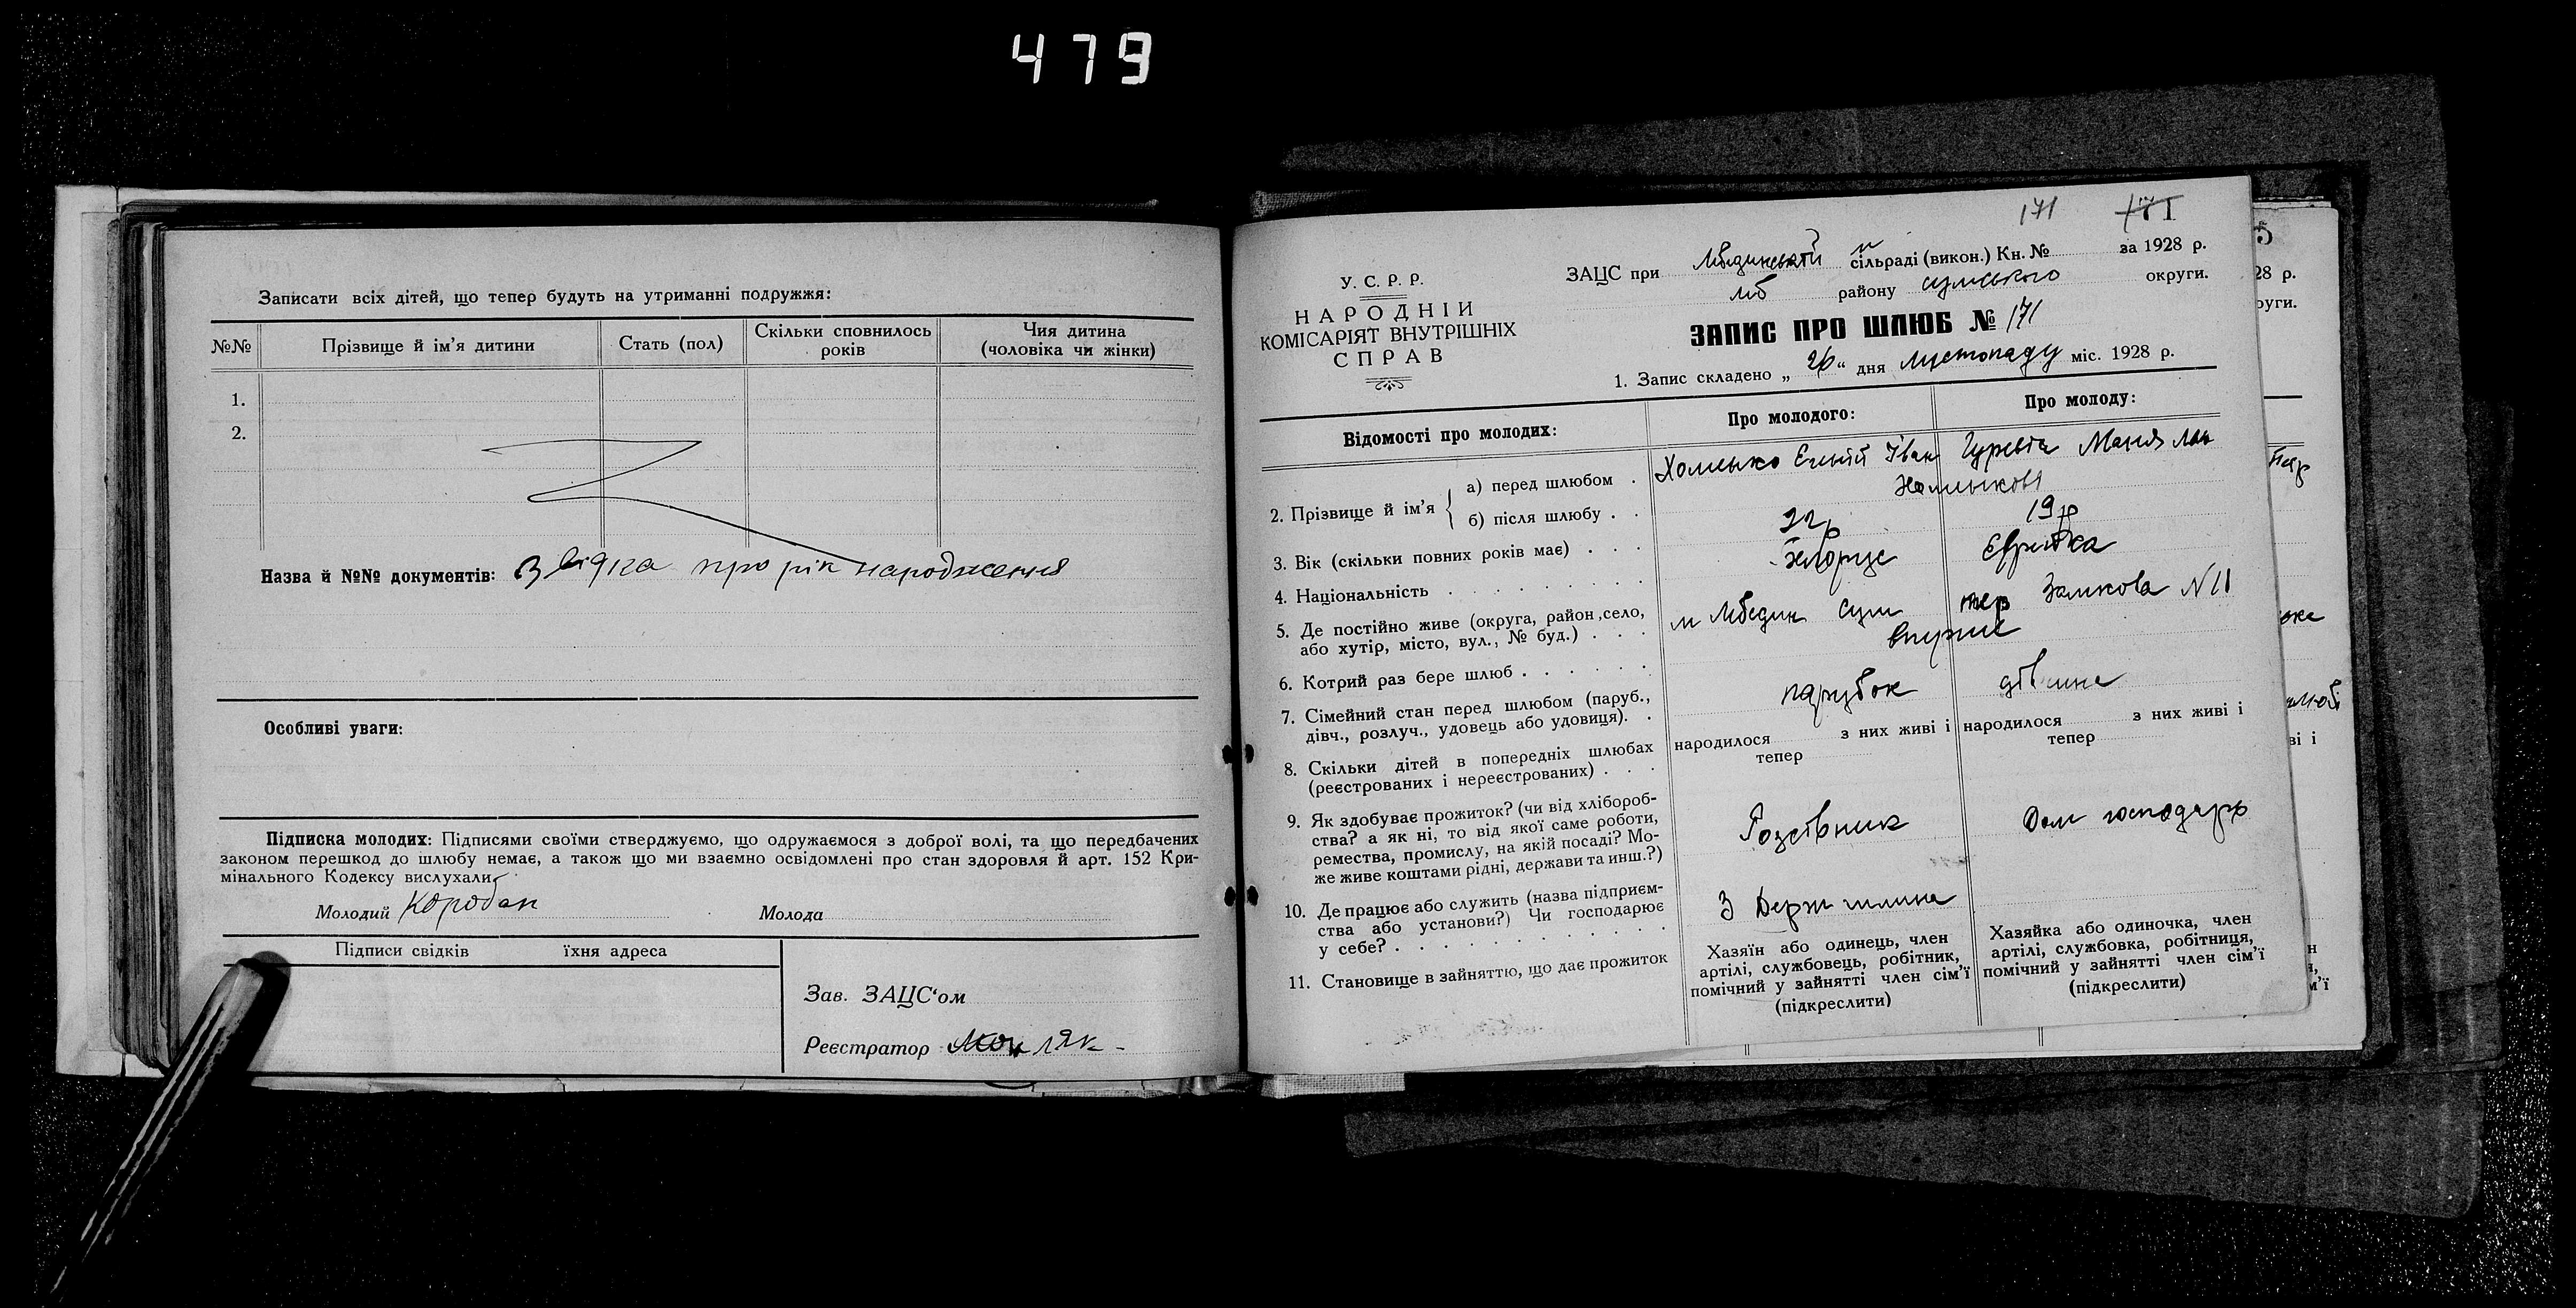 479
Записати всіх дітей, що тепер будуть на утриманні подружжя:
№№ Прізвище й ім'я дитини Стать (пол) Скільки сповнилось років Чия дитина (чоловіка чи жінки)
1.
2.
Назва й №№ документів: про рік народження
Особливі уваги:
Підписка молодих: Підписями своїми стверджуємо, що одружаємося з доброї волі, та що передбачених
законом перешкод до шлюбу немає, а також що ми взаємно освідомлені про стан здоровля й арт. 152 Кри-
мінального Кодексу вислухали.
Молодий Коробан Молода
Підписи свідків їхня адреса
Зав. ЗАЦС‘ом
Реєстратор
171 171
У. С. Р. Р.
НАРОДНІЙ
КОМІСАРІЯТ ВНУТРІШНІХ
СПРАВ
ЗАЦС при сільраді (викон.) Кн. № за 1928 р.
району сумського округи.
ЗАПИС ПРО ШЛЮБ № 171
1. Запис складено „ 26 “ дня листопаду міс. 1928 р.
Відомості про молодих: Про молодого: Про молоду:
2. Прізвище й ім'я
а) перед шлюбом Іван Маня
б) після шлюбу
3. Вік (скільки повних років має) 22р 19р
4. Національність Єврейка
5. Де постійно живе (округа, район, село,
або хутір, місто, вул., № буд.) м Лебедин Сум пер Замкова N 11
6. Котрий раз бере шлюб вперше
7. Сімейний стан перед шлюбом (паруб.,
дівч., розлуч., удовець або удовиця). парубок дівчина
8. Скільки дітей в попередніх шлюбах
(реєстрованих і нереєстрованих)
народилося з них живі і
тепер
народилося з них живі і
тепер
9. Як здобуває прожиток? (чи від хлібороб-
ства? а як ні, то від якої саме роботи,
ремества, промислу, на якій посаді? Мо-
же живе коштами рідні, держави та инш.?)
Дом господарь
10. Де працює або служить (назва підприєм-
ства або установи?) Чи господарює
у себе?
11. Становище в зайняттю, що дає прожиток
Хазяїн або одинець, член
артілі, службовець, робітник,
помічний у зайнятті член сім'ї
(підкреслити)
Хазяйка або одиночка, член
артілі, службовка, робітниця,
помічний у зайнятті член сім'ї
(підкреслити)
5
28 р.
руги.